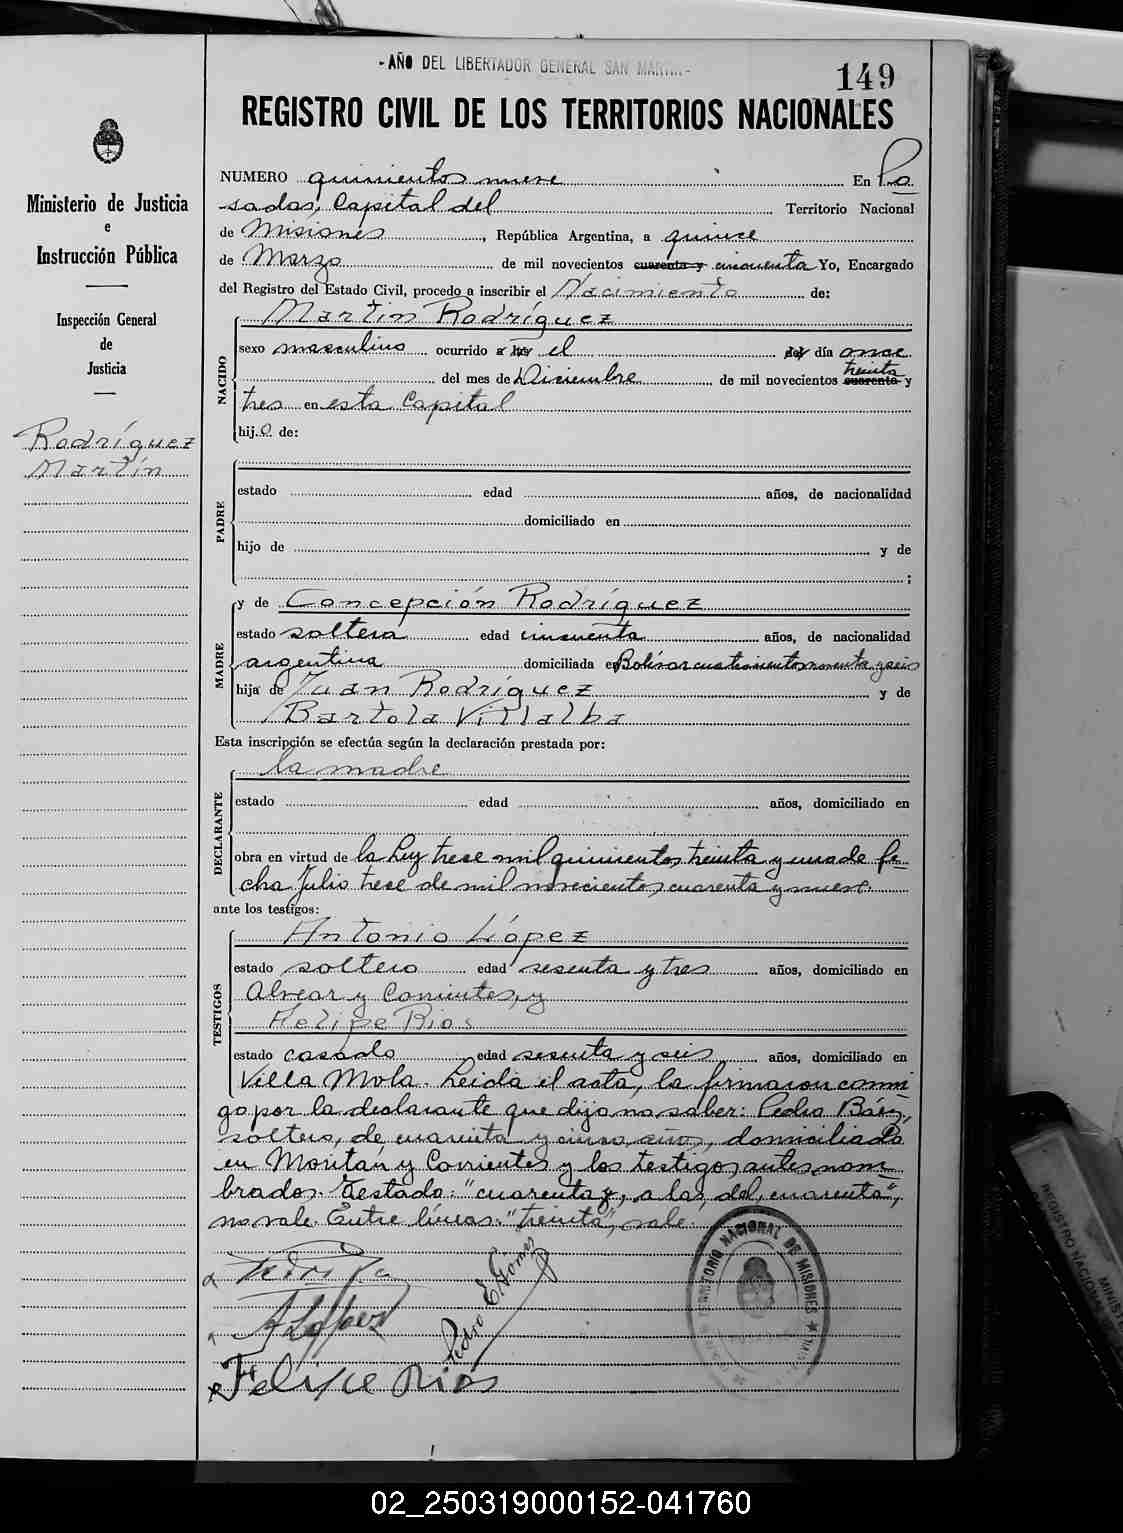 - AÑO DEL LIBERTADOR GENERAL SAN MARTIN -
149
REGISTRO CIVIL DE LOS TERRITORIOS NACIONALES
Ministerio de Justicia
e
Instrucción Pública
Inspección General
de
Justicia
Rodríguez
Martín
NUMERO quinientos nueve En Po
sadas, Capital del Territorio Nacional
de Misiones, República Argentina, a quince
de Marzo de mil novecientos cuarenta y cincuenta Yo, Encargado
del Registro del Estado Civil, procedo a inscribir el Nacimiento de:
Martin Rodríguez
NACIDO
sexo masculino ocurrido a las el del día once
treinta
del mes de Diciembre de mil novecientos cuarenta y
tres en esta Capital
hij.o de:
PADRE
estado edad años, de nacionalidad
domiciliado en
hijo de y de
;
MADRE
y de Concepción Rodríguez
estado soltera edad cincuenta años, de nacionalidad
argentina domiciliada en Bolívar cuatrocientos noventa y seis
hija de Juan Rodríguez y de
Bartola Villalba
Esta inscripción se efectúa según la declaración prestada por:
la madre
DECLARANTE
estado edad años, domiciliado en
obra en virtud de la Ley trece mil quinientos treinta y uno de fe-
cha Julio trece de mil novecientos cuarenta y nueve.
ante los testigos:
Antonio López
TESTIGOS
estado soltero edad sesenta y tres años, domiciliado en
Alvear y Corrientes, y
Felipe Rios
estado casado edad sesenta y seis años, domiciliado en
Villa Mola. Leida el acta, la firmaron conmi
go por la declarante que dijo no saber: Pedro Báez,
soltero, de cuarenta y cinco años, domiciliado
en Moritán y Corrientes y los testigos antes nom
brados. Testado: "cuarenta y, a las, del, cuarenta",
no vale. Entre líneas: "treinta", vale.
A López
Pedro E. Gómez
Felipe Rios
TERRITORIO NACIONAL DE MISIONES
REGISTRO NACIONAL
MINIST
02_250319000152-041760